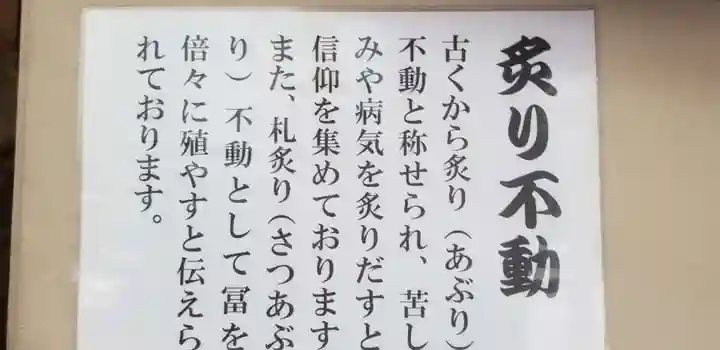 炙り不動
古くから炙り（あぶり）
不動と称せられ、苦し
みや病気を炙りだすと
信仰を集めております
また、札炙り（さつあぶ
り）不動として冨を
倍々に殖やすと伝えら
れております。